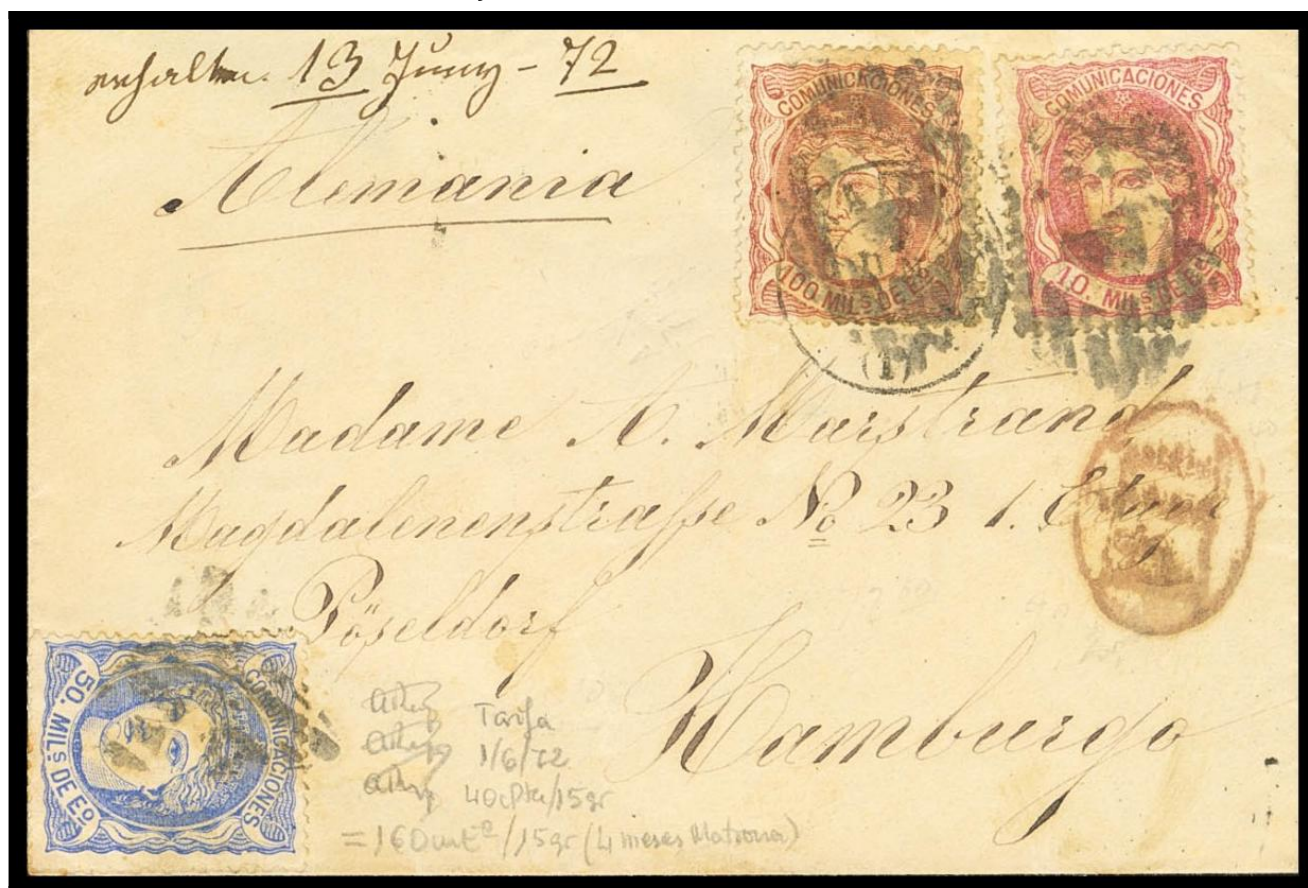 erhalten. 13 Juny - 72
Alemania
COMUNICACIONES
100 MILS DE Eo
COMUNICACIONES
10. MILS DE Eo
(1)
Madame A. Marstrand
Magdalenenstrasse No 23 1. Etage
Pöseldorf
Hamburgo
COMUNICACIONES
50. MILS DE Eo
Tarifa
1/6/72
40 cPta/15gr
= 160 m Eo/15gr (4 meses Matrona)